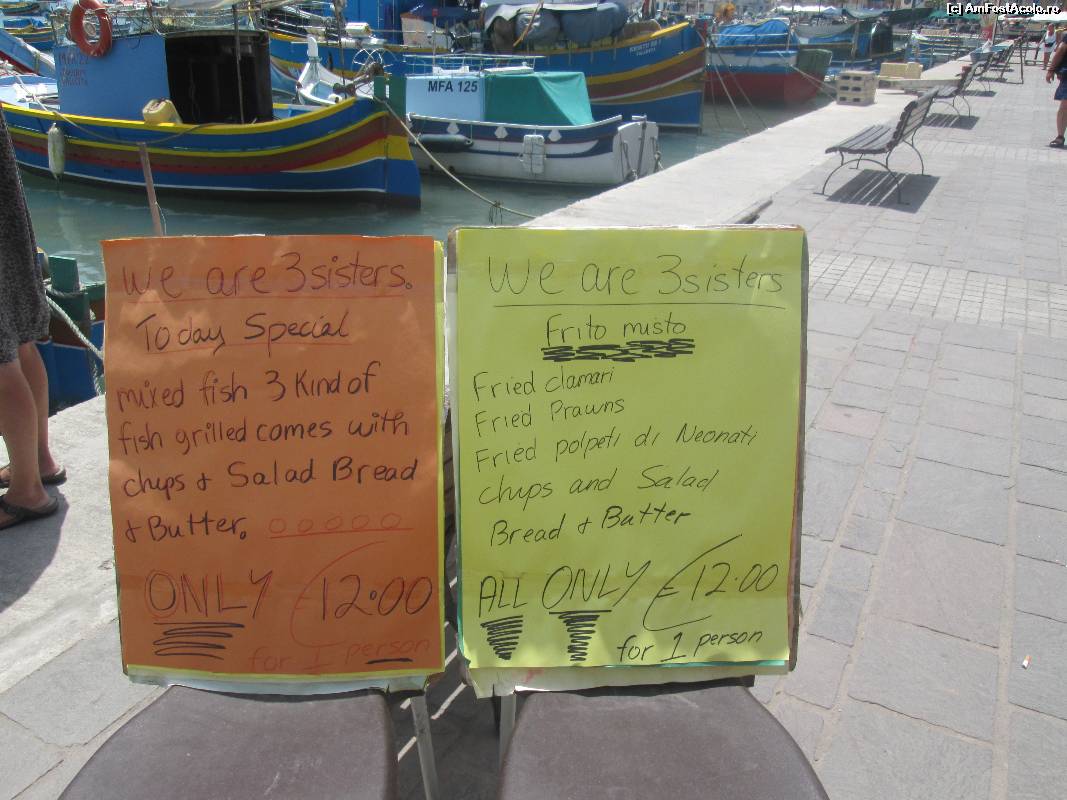 [c] AmFostAcolo.ro
MFA 125
We are 3 sisters.
Today Special
mixed fish 3 Kind of
fish grilled comes with
chips & Salad Bread
& Butter.
ONLY €12.00
for 1 person
We are 3 sisters
Frito misto
Fried clamari
Fried Prawns
Fried polpeti di Neonati
chips and Salad
Bread & Butter
ALL ONLY €12.00
for 1 person